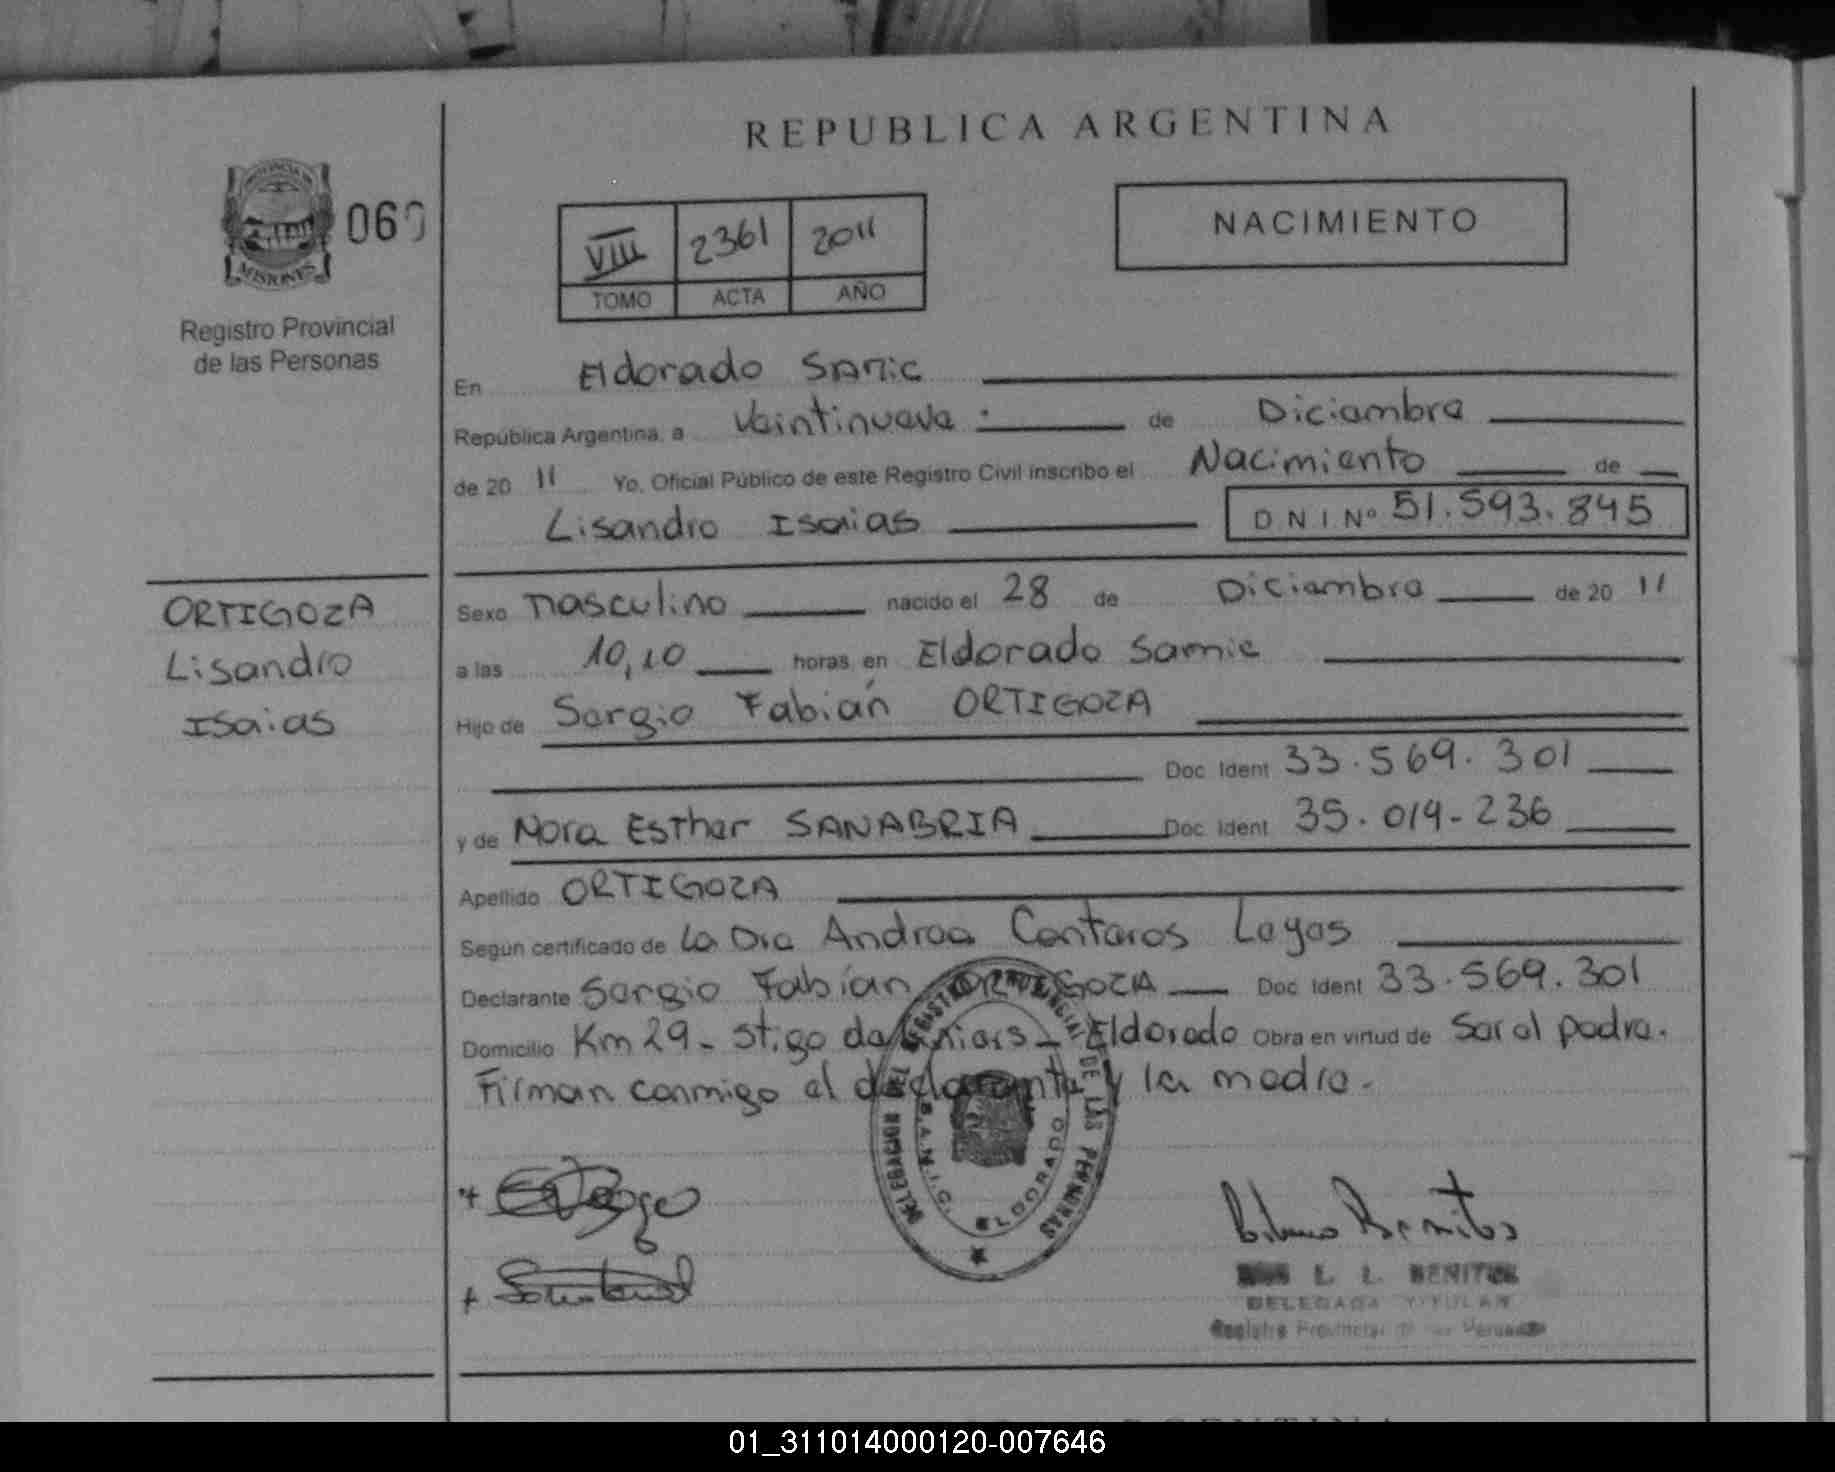 REPUBLICA ARGENTINA
PROVINCIA DE
MISIONES
060
Registro Provincial
de las Personas
VIII 2361 2011
TOMO ACTA AÑO
NACIMIENTO
En Eldorado SAMIC
República Argentina, a Veintinueve de Diciembre
de 20 11 Yo, Oficial Público de este Registro Civil inscribo el Nacimiento de
Lisandro Isaias DNI Nº 51.593.845
ORTIGOZA
Lisandro
Isaias
Sexo Masculino nacido el 28 de Diciembre de 20 11
a las 10,10 horas en Eldorado Samic
Hijo de Sergio Fabián ORTIGOZA
Doc. Ident 33.569.301
y de Nora Esther SANABRIA Doc. Ident 35.019.236
Apellido ORTIGOZA
Según certificado de La Dra Andrea Centeros Leyes
Declarante Sergio Fabián ORTIGOZA Doc. Ident 33.569.301
Domicilio Km 29 - Stigo de Liniers - Eldorado Obra en virtud de Ser el padre.
Firman conmigo el declarante y la madre.
REGISTRO PROVINCIAL DE LAS PERSONAS
DELEGACION
ELDORADO
L. L. BENITEZ
DELEGADA TITULAR
Registro Provincial de las Personas
01_311014000120-007646